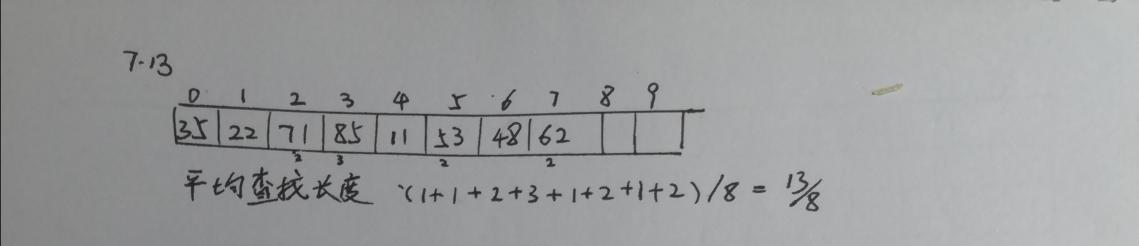 7.13
0 1 2 3 4 5 6 7 8 9
35 22 71 85 11 53 48 62
2 3 2 2
平均查找长度 (1+1+2+3+1+2+1+2)/8 = 13/8